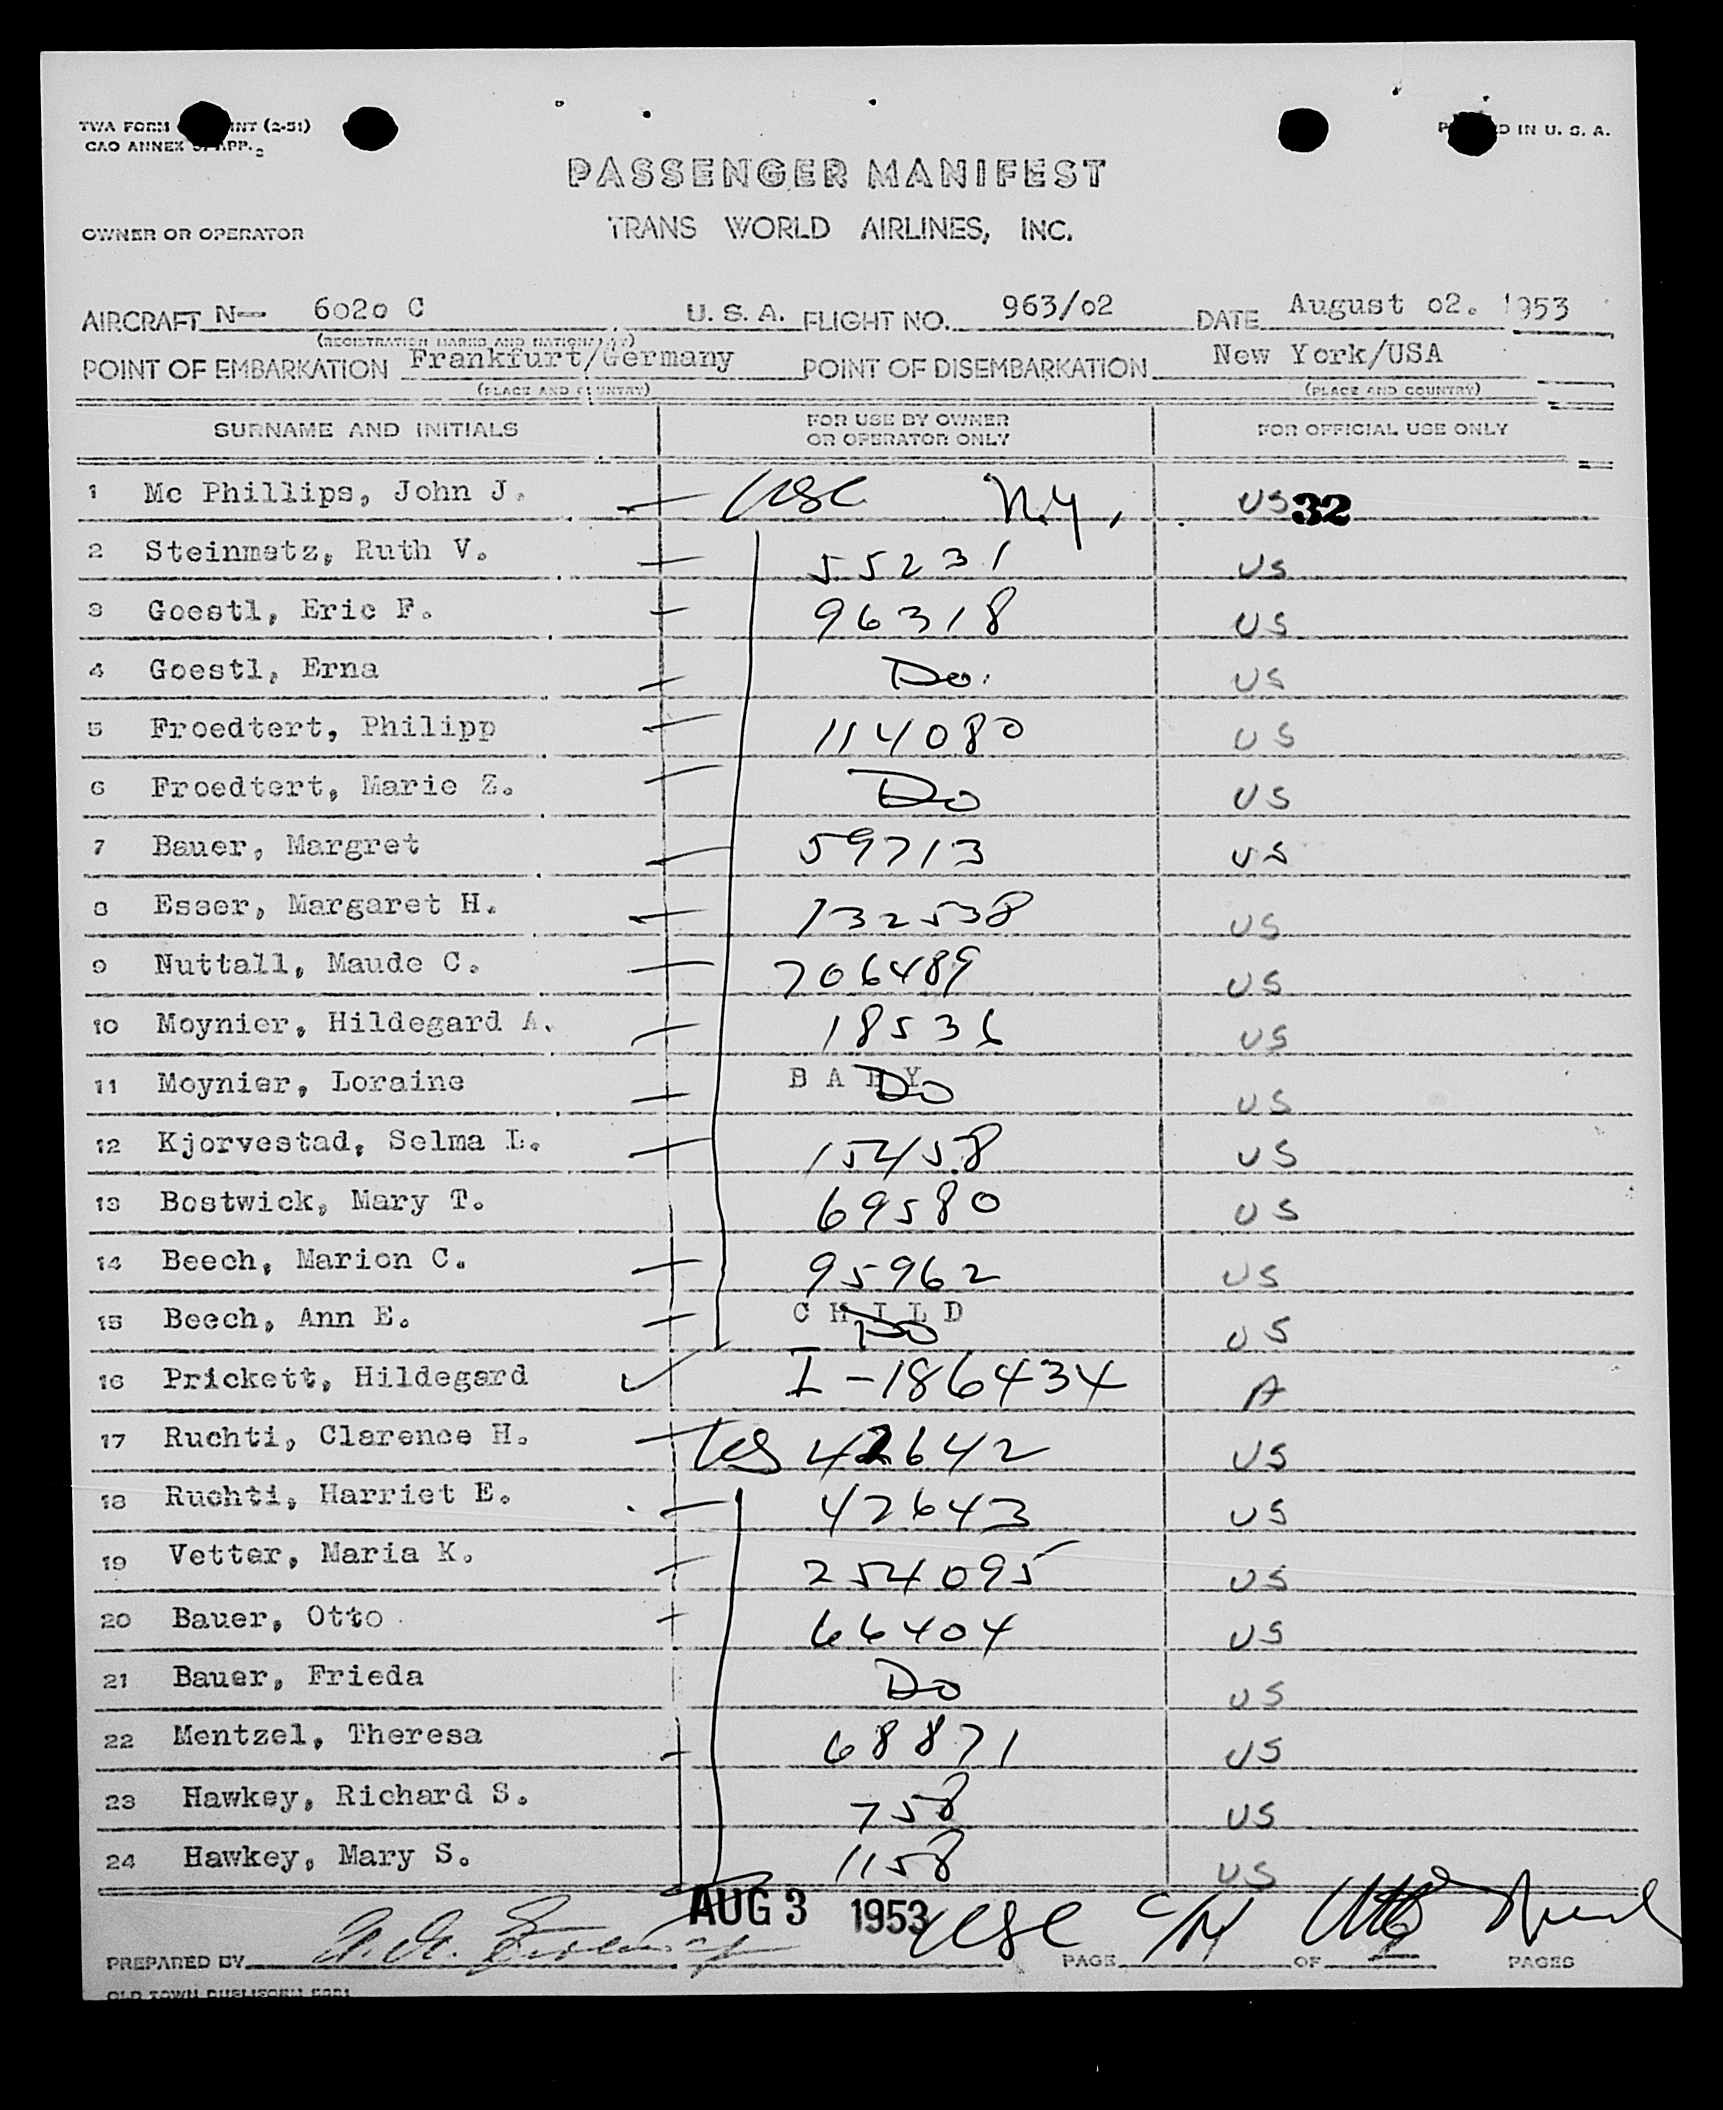 TWA FORM INT (2-51)
CAO ANNEX 9, APP.
PRINTED IN U. S. A.
PASSENGER MANIFEST
OWNER OR OPERATOR
TRANS WORLD AIRLINES, INC.
AIRCRAFT N— 6020 C U. S. A. FLIGHT NO. 963/02 DATE August 02. 1953
(REGISTRATION MARKS AND NATIONALITY)
POINT OF EMBARKATION Frankfurt/Germany POINT OF DISEMBARKATION New York/USA
(PLACE AND COUNTRY) (PLACE AND COUNTRY)
SURNAME AND INITIALS FOR USE BY OWNER OR OPERATOR ONLY FOR OFFICIAL USE ONLY
1 Mc Phillips, John J. USC N.Y. US 32
2 Steinmetz, Ruth V. 55231 US
3 Goestl, Eric F. 96318 US
4 Goestl, Erna Do. US
5 Froedtert, Philipp 114080 US
6 Froedtert, Marie Z. Do US
7 Bauer, Margret 59713 US
8 Esser, Margaret H. 132538 US
9 Nuttall, Maude C. 706489 US
10 Moynier, Hildegard A. 18536 US
11 Moynier, Loraine B A B Y Do US
12 Kjorvestad, Selma L. 154158 US
13 Bostwick, Mary T. 69580 US
14 Beech, Marion C. 95962 US
15 Beech, Ann E. C H I L D Do US
16 Prickett, Hildegard I-186434 A
17 Ruchti, Clarence H. 42642 US
18 Ruchti, Harriet E. 42643 US
19 Vetter, Maria K. 254095 US
20 Bauer, Otto 66404 US
21 Bauer, Frieda Do US
22 Mentzel, Theresa 68871 US
23 Hawkey, Richard S. 758 US
24 Hawkey, Mary S. 1158 US
AUG 3 1953 USC
PREPARED BY PAGE OF PAGES